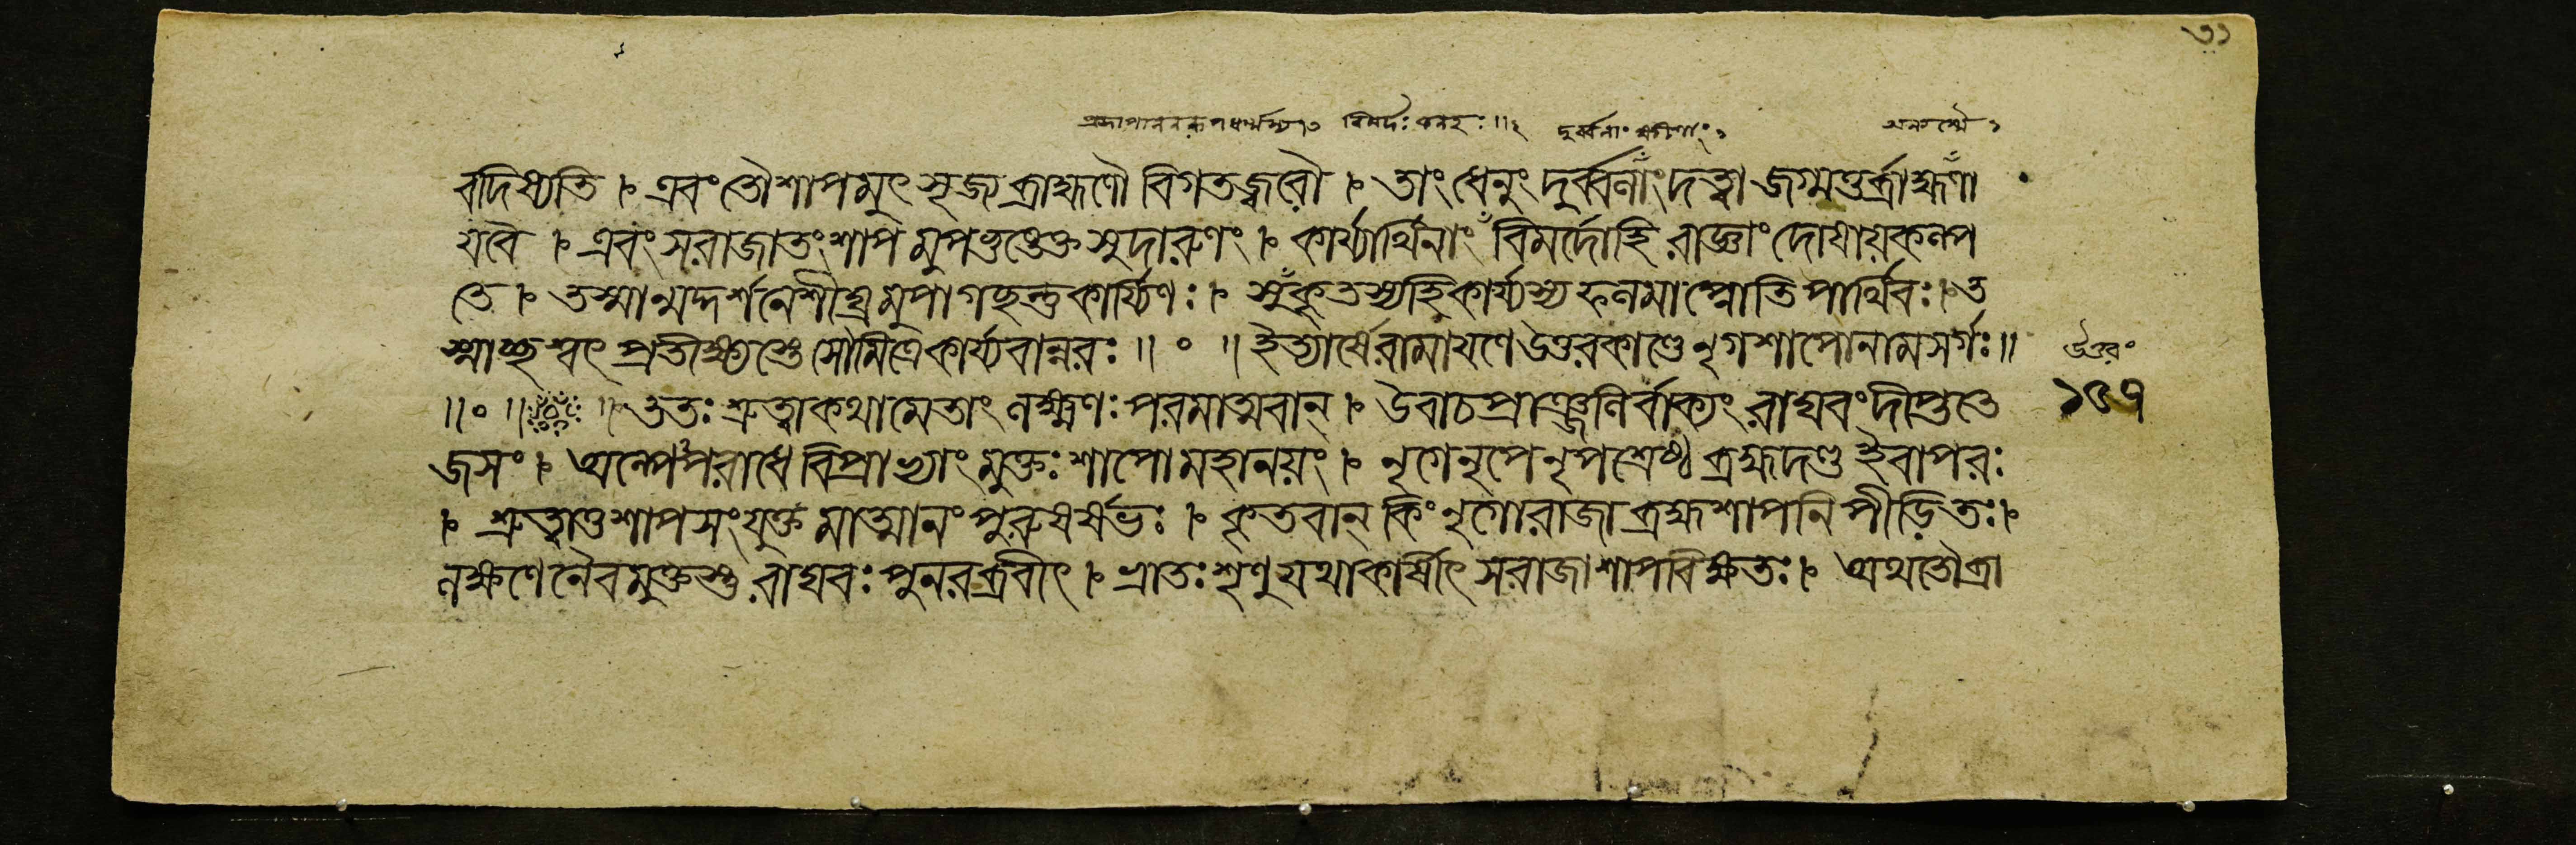 ৩১
বদিষ্যতি । এবং তৌশাপমুৎসৃজ্যব্রাহ্মণৌ বিগতজ্বরৌ । তাং ধেনুং দুর্ব্বলাং দত্বা জগ্মতুর্ব্রাহ্মণা
যবৈ । এবং সরাজাতংশাপমুপভুঙেক্ত সুদারুণং । কার্য্যার্থিনাং বিমর্দোহি রাজ্ঞাং দোষায়কল্প
তে । তস্মান্মদ্দর্শনেশীঘ্রমুপাগছন্তুকার্য্যিণঃ । সুকৃতস্যহিকার্য্যস্য ফলমাপ্নোতি পার্থিবঃ । ত
স্মাচ্ছশ্বৎ প্রতীক্ষ্যস্তে সৌমিত্রেকার্য্যবান্নরঃ ॥ ० ॥ ইত্যার্ষেরামায়ণেউত্তরকাণ্ডে নৃগশাপোনামসর্গঃ ॥
॥ ० ॥ ॥ ততঃ শ্রুত্বাকথামেতাং লক্ষ্মণঃ পরমাত্মবান্ । উবাচপ্রাঞ্জলির্বাক্যং রাঘবং দীপ্ততে
জসং । অল্পেপরাধে বিপ্রাভ্যাং মুক্তঃ শাপোমহানয়ং । নৃগেনৃপে নৃপশ্রেষ্ঠ ব্রহ্মদণ্ড ইবাপরঃ
। শ্রুত্বাতুশাপসংযুক্তমাত্মানং পুরুষর্ষভঃ । কৃতবান্ কিং নৃগোরাজা ব্রহ্মশাপনিপীড়িতঃ ।
লক্ষণেনৈবমুক্তস্তু রাঘবঃ পুনরব্রবীৎ । ভ্রাতঃ শৃণু যথাকার্ষীৎ সরাজা শাপবিক্ষতঃ । অথতৌব্রা
উত্তরং
১৫৭